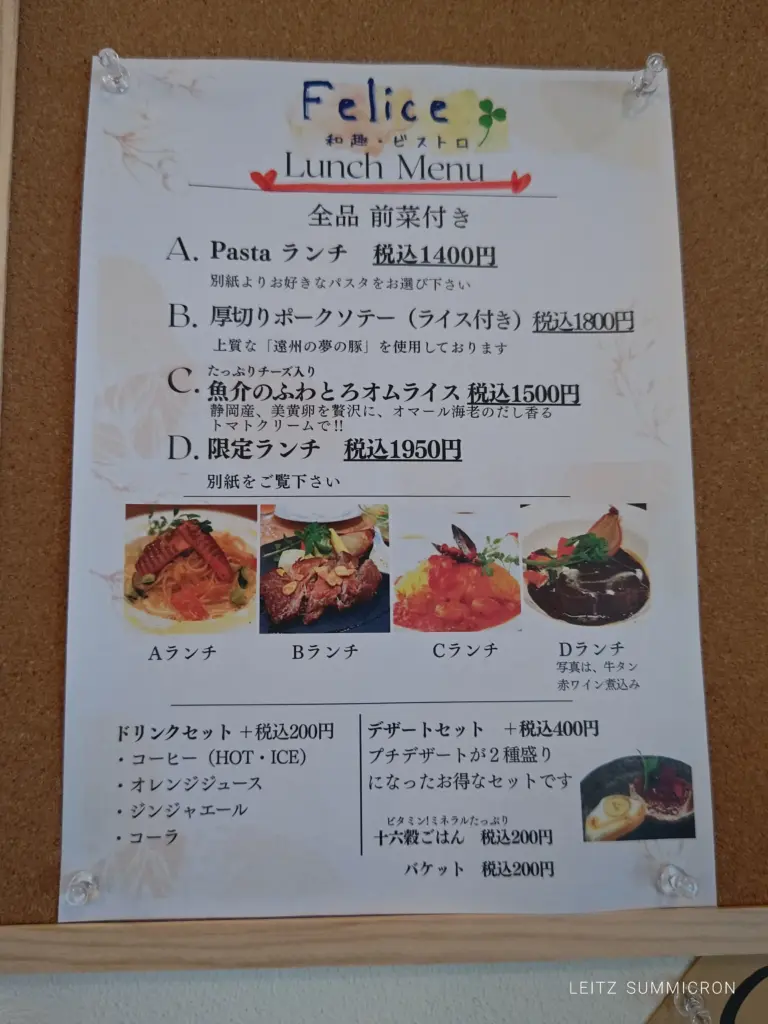 Felice
和趣・ビストロ
Lunch Menu
全品 前菜付き
A. Pasta ランチ 税込1400円
別紙よりお好きなパスタをお選び下さい
B. 厚切りポークソテー（ライス付き）税込1800円
上質な「遠州の夢の豚」を使用しております
たっぷりチーズ入り
C. 魚介のふわとろオムライス 税込1500円
静岡産、美黄卵を贅沢に、オマール海老のだし香る
トマトクリームで!!
D. 限定ランチ 税込1950円
別紙をご覧下さい
Aランチ
Bランチ
Cランチ
Dランチ
写真は、牛タン
赤ワイン煮込み
ドリンクセット＋税込200円
・コーヒー（HOT・ICE）
・オレンジジュース
・ジンジャエール
・コーラ
デザートセット ＋税込400円
プチデザートが２種盛り
になったお得なセットです
ビタミン!ミネラルたっぷり
十六穀ごはん 税込200円
バケット 税込200円
LEITZ SUMMICRON